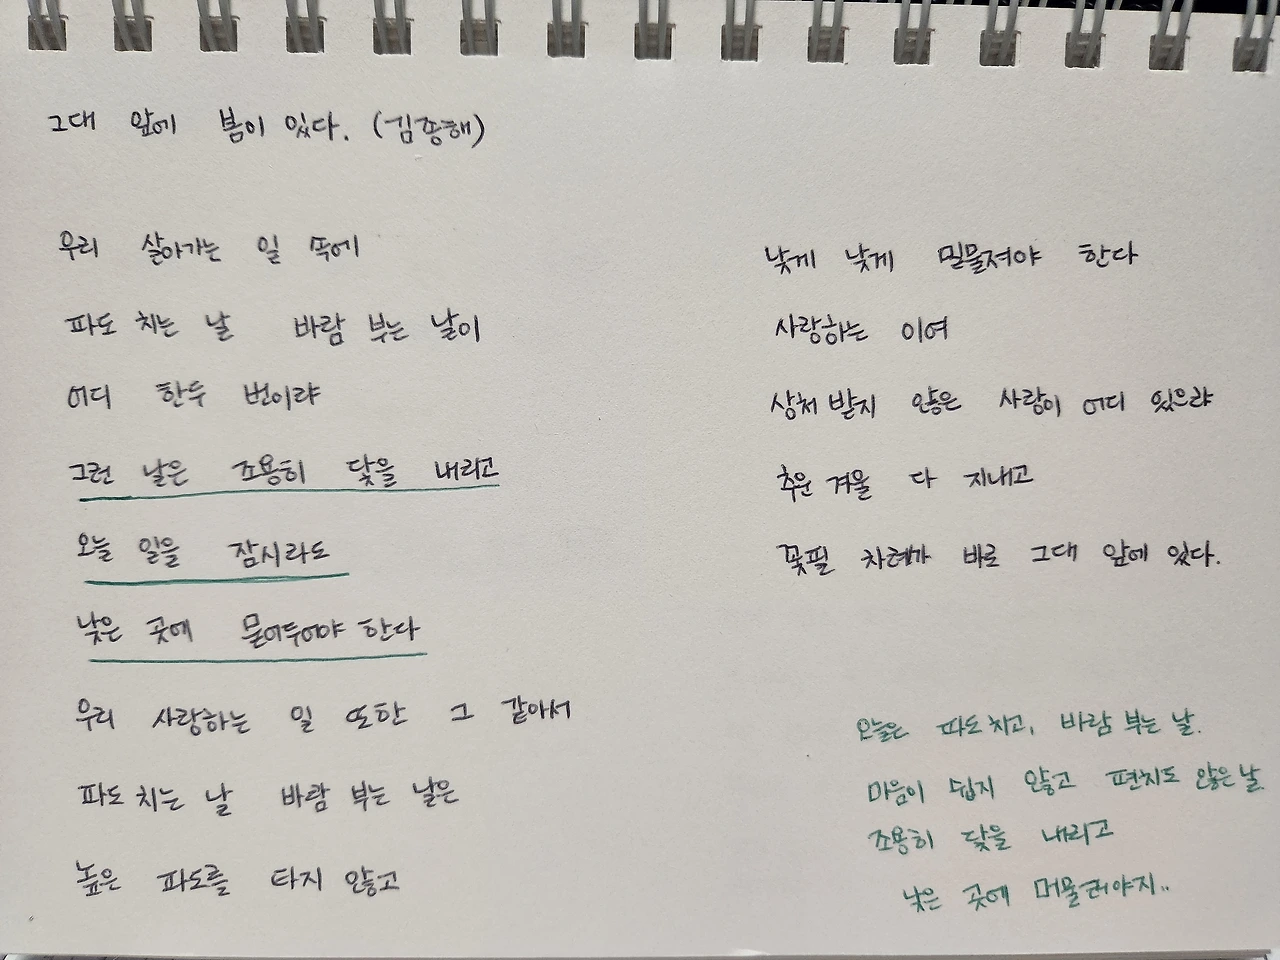 그대 앞에 봄이 있다. (김종해)
우리 살아가는 일 뜩에
파도 치는 날 바람 부는 날이
어디 한두 번이랴
그런 날은 조용히 닻을 내리고
오늘 일을 잠시라도
낮은 곳에 묻어두어야 한다
우리 사랑하는 일 또한 그 같아서
파도 치는 날 바람 부는 날은
높은 파도를 타지 않고
낮게 낮게 밀물져야 한다
사랑하는 이여
상처 받지 않은 사랑이 어디 있으랴
추운 겨울 다 지내고
꽃필 차례가 바로 그대 앞에 있다.
오늘은 파도 치고, 바람 부는 날.
마음이 쉽지 않고 편치도 않은 날.
조용히 닻을 내리고
낮은 곳에 머물러야지..